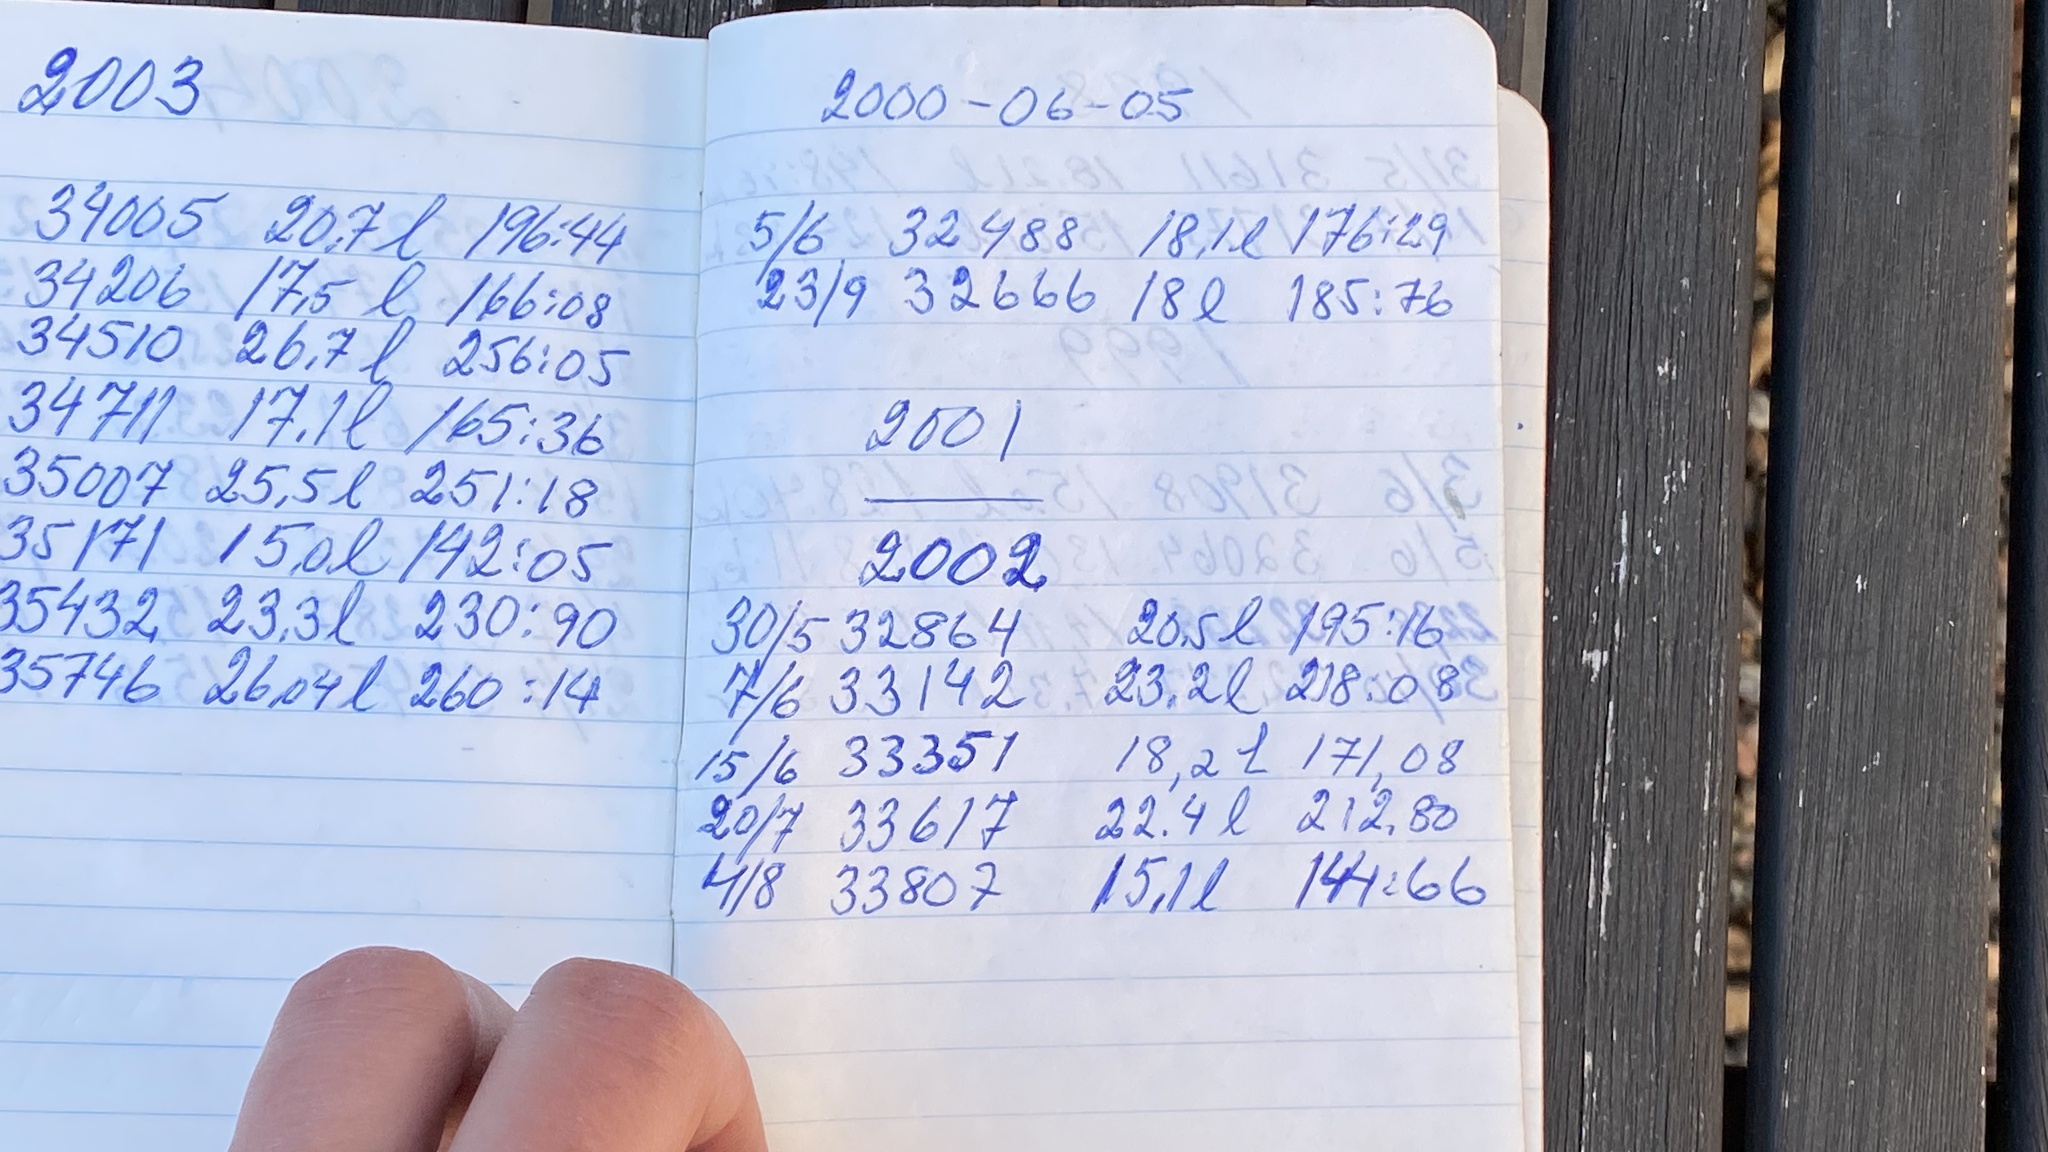 2003
34005 20,7 l 196:44
34206 17,5 l 166:08
34510 26,7 l 256:05
34711 17,1 l 165:36
35007 25,5 l 251:18
35171 15,0 l 142:05
35432 23,3 l 230:90
35746 26,04 l 260:14
2000-06-05
5/6 32488 18,1 l 176:29
23/9 32666 18 l 185:76
2001
2002
30/5 32864 20,5 l 195:16
7/6 33142 23.2 l 218:08
15/6 33351 18,2 l 171,08
20/7 33617 22.4 l 212,80
4/8 33807 15,1 l 144:66